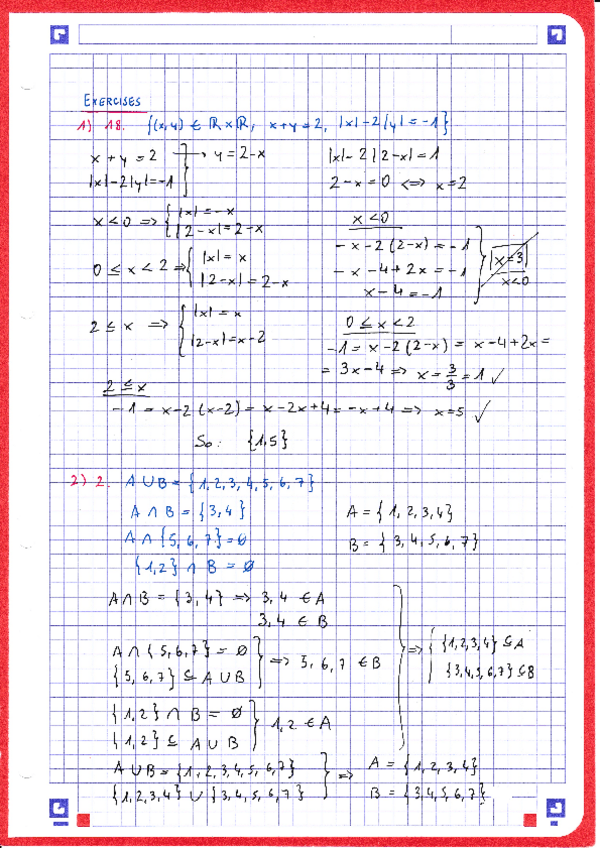 EXERCISES
1) 18. {(x,y) ∈ ℝ×ℝ, x+y=2, |x|-2|y|=-1}
x+y=2 → y=2-x
|x|-2|y|=-1
|x|-2|2-x|=1
2-x=0 <=> x=2
x<0 => { |x|=-x
|2-x|=2-x
0≤x<2 => { |x|=x
|2-x|=2-x
2≤x => { |x|=x
|2-x|=x-2
x<0
-x-2(2-x)=-1
-x-4+2x=-1
x-4=-1
x=3
x<0
0≤x<2
-1=x-2(2-x)=x-4+2x=
=3x-4 => x=3/3=1 ✓
2≤x
-1=x-2(x-2)=x-2x+4=-x+4 => x=5 ✓
So: {1,5}
2) 2. A∪B={1,2,3,4,5,6,7}
A∩B={3,4}
A∩{5,6,7}=∅
{1,2}∩B=∅
A={1,2,3,4}
B={3,4,5,6,7}
A∩B={3,4} => 3,4 ∈ A
3,4 ∈ B
A∩{5,6,7}=∅
{5,6,7}⊆A∪B
} => 5,6,7 ∈ B
{1,2}∩B=∅
{1,2}⊆A∪B
} 1,2 ∈ A
=> { {1,2,3,4}⊆A
{3,4,5,6,7}⊆B
A∪B={1,2,3,4,5,6,7}
{1,2,3,4}∪{3,4,5,6,7}
} => A={1,2,3,4}
B={3,4,5,6,7}